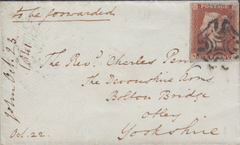 to be forwarded
The Revd. Charles
The Devonshire Arms
Bolton Bridge
Otley
Yorkshire
Oct. 22.